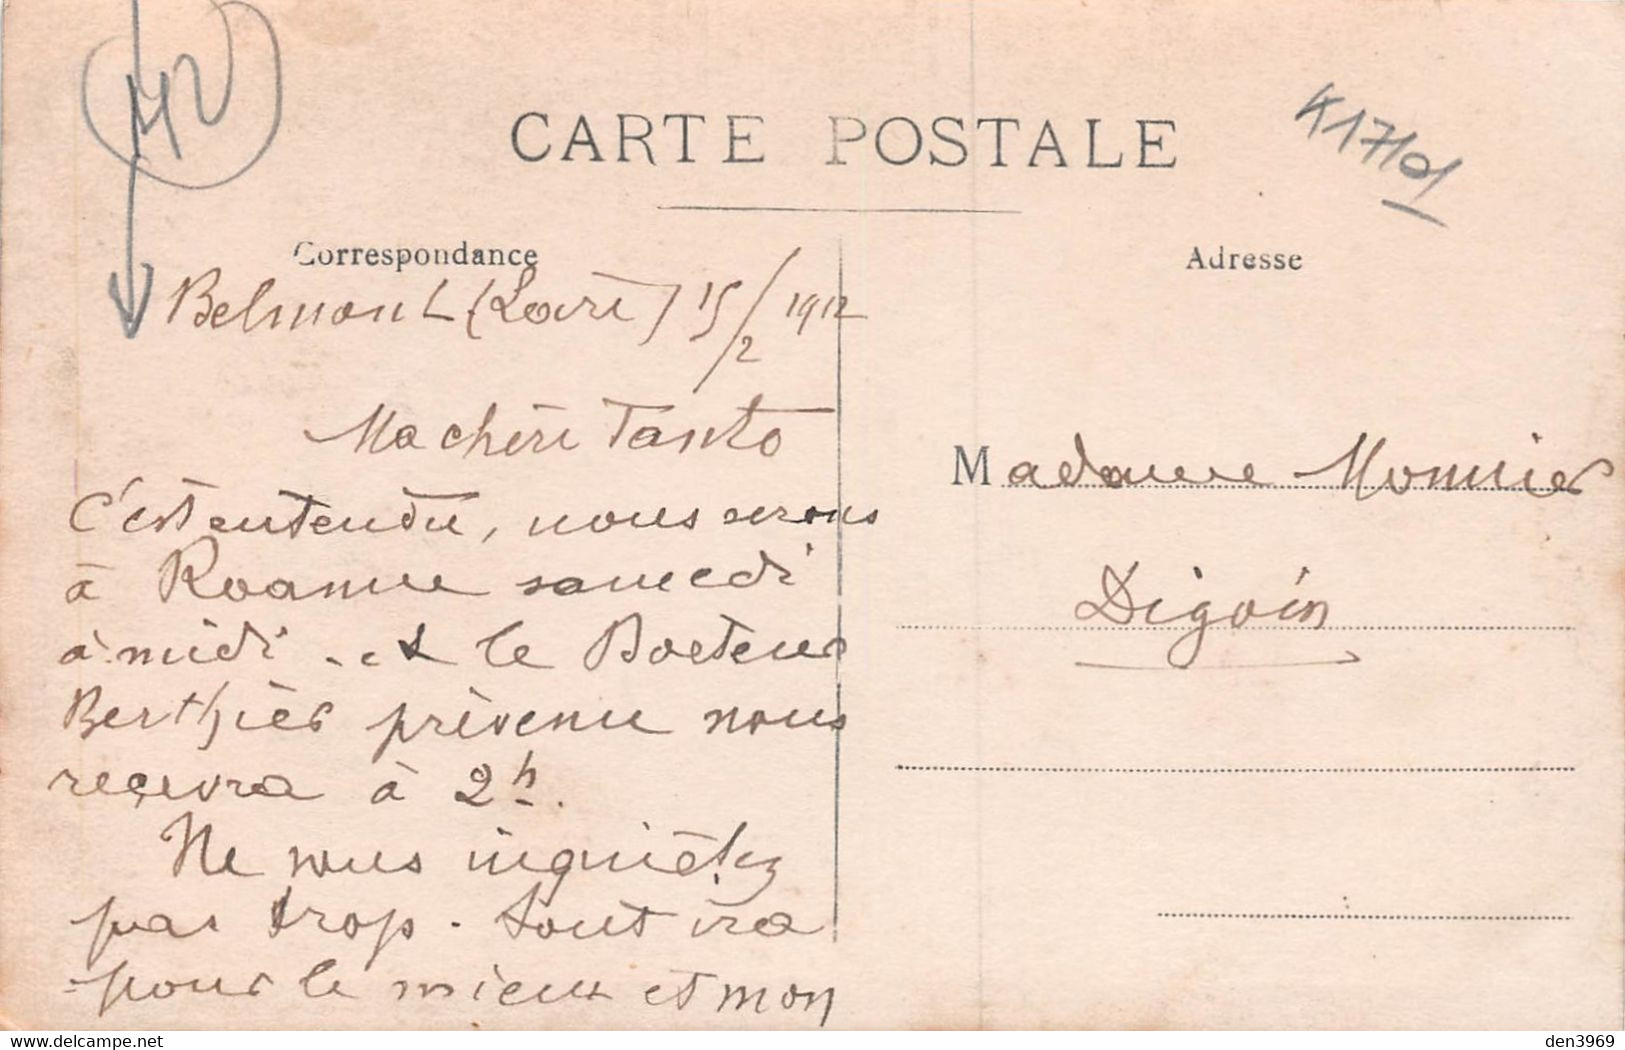 42
CARTE POSTALE
K17101
Correspondance
Belmont (Loire) 15/2 1912
Ma chère Tanto
C'est entendu, nous serons
à Roanne samedi
à midi . et le Docteur
Berthier prévenu nous
recevra à 2h.
Ne vous inquiétez
pas trop. Tout ira
pour le mieux et mon
Adresse
Madame Monnier
Digoin
www.delcampe.net
den3969